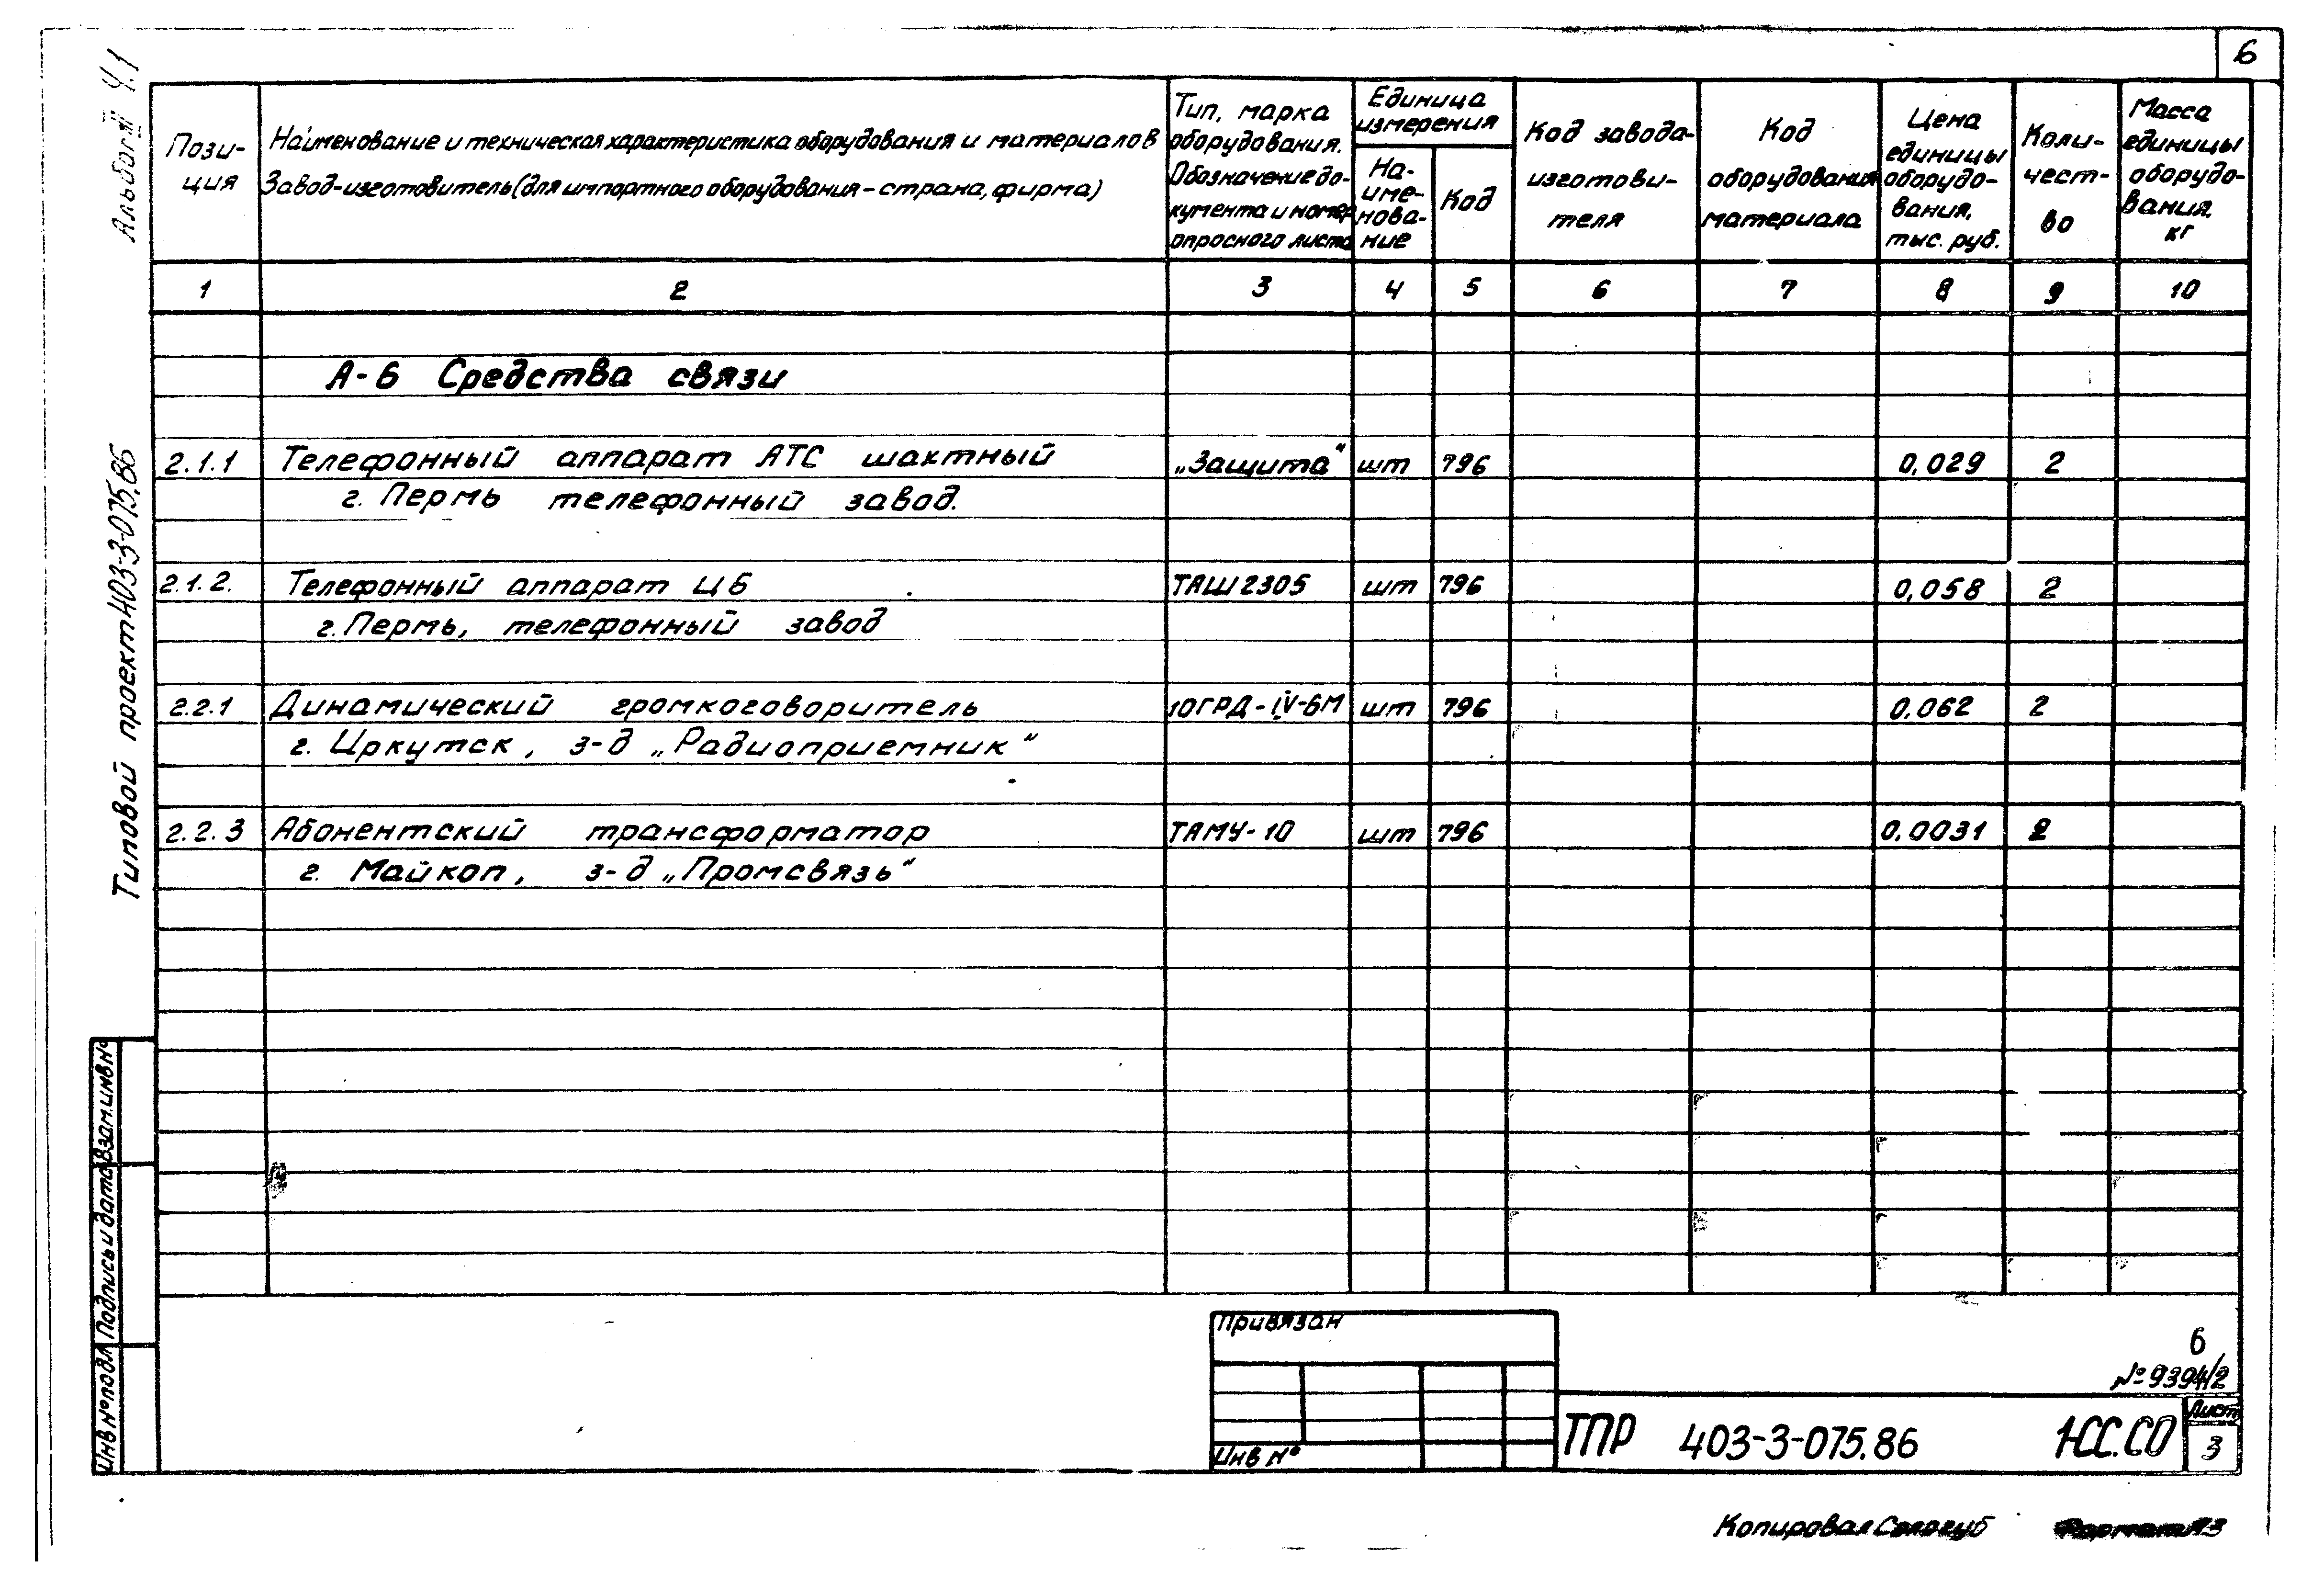 6
Альбом II Ч.1
Типовой проект 403-3-075.86
Пози-
ция
Наименование и техническая характеристика оборудования и материалов
Завод-изготовитель (для импортного оборудования – страна, фирма)
Тип, марка
оборудования.
Обозначение до-
кумента и номер
опросного листа
Единица
измерения
На-
име-
нова-
ние
Код
Код завода-
изготови-
теля
Код
оборудования
материала
Цена
единицы
оборудо-
вания,
тыс. руб.
Коли-
чест-
во
Масса
единицы
оборудо-
вания,
кг
1 2 3 4 5 6 7 8 9 10
А-6 Средства связи
2.1.1 Телефонный аппарат АТС шахтный „Защита“ шт 796 0,029 2
г. Пермь телефонный завод.
2.1.2. Телефонный аппарат ЦБ ТАШ 2305 шт 796 0,058 2
г. Пермь, телефонный завод
2.2.1 Динамический громкоговоритель 10ГРД-IV-6М шт 796 0,062 2
г. Иркутск, з-д „Радиоприемник“
2.2.3 Абонентский трансформатор ТАМУ-10 шт 796 0,0031 2
г. Майкоп, з-д „Промсвязь“
Взам.инв№
Подпись и дата
Инв№подл
Привязан
Инв №
6
№9394/2
ТПР 403-3-075.86
1-СС.СО
Лист
3
Копировал Сологуб
Формат А3